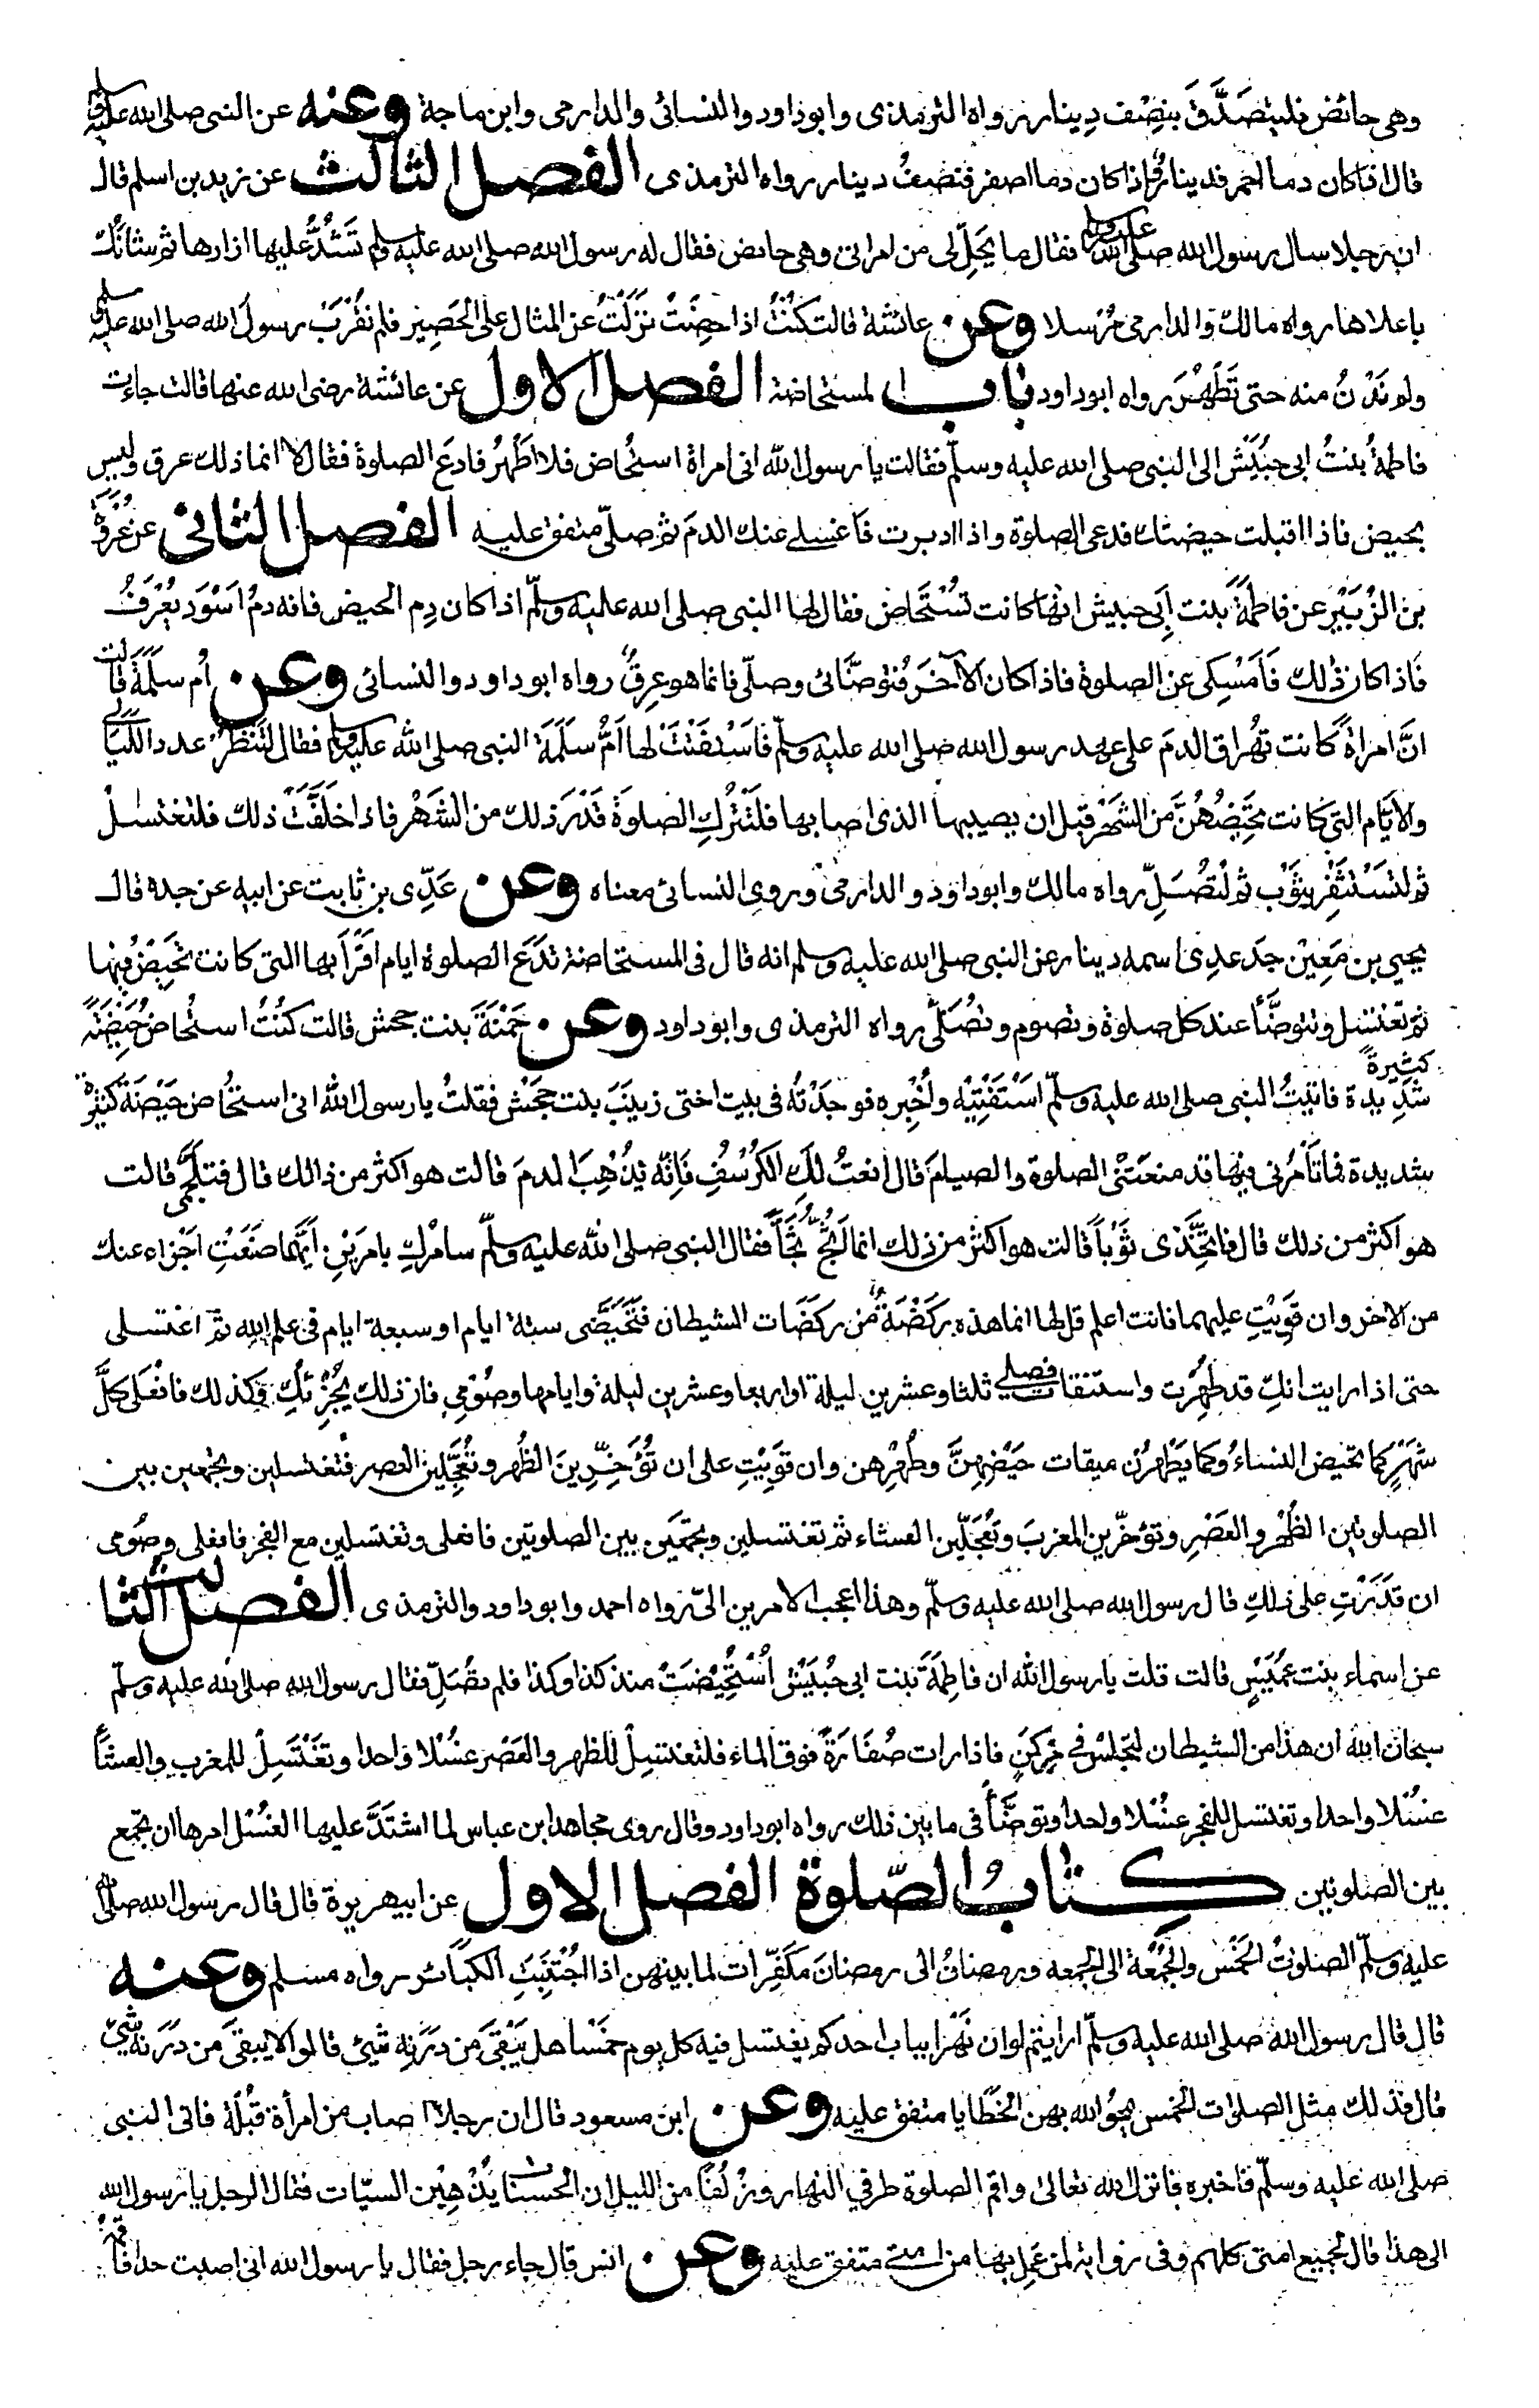 وهى حائض فليتصَدَّقَ بنِصْف دِينار رواه الترمذى وابوداود والنسائى والدارمى وابن ماجة وعنه عن النبى صلى الله عليه وسلم
قال اذا كان دما احمر فدينار واذا كان دما اصفر فنصفُ دينار رواه الترمذى الفصل الثالث عن زيد بن اسلم قال
ان رجلا سال رسول الله صلى الله عليه وسلم فقال ما يَحِلّ لى من امراتى وهى حائض فقال له رسول الله صلى الله عليه وسلم تَشُدُّ عليها ازارها ثم شانَك
باعلاها رواه مالك والدارمى مُرْسلا وعن عائشة قالت كنْتُ اذا حِضْتُ نزَلْتُ عن المثال على الحَصِير فلم نقْرَبْ رسول الله صلى الله عليه وسلم
ولم نَدْنُ منه حتى تَطْهُرَ رواه ابوداود باب المستحاضة الفصل الاول عن عائشة رضى الله عنها قالت جاءت
فاطمةُ بنتُ ابى حُبَيْش الى النبى صلى الله عليه وسلم فقالت يا رسول الله انى امراة استُحاض فلا اَطْهُرُ فادعَ الصلوة فقال لا انما ذلك عرق وليس
بحيض فاذا اقبلت حيضتك فدعى الصلوة واذا ادبرت فاغسلى عنك الدمَ ثم صلّى متفق عليه الفصل الثانى عن عُرْوَةَ
بن الزُبَيْر عن فاطمةَ بنت اَبى حبيش انها كانت تُسْتَحاض فقال لها النبى صلى الله عليه وسلّم اذا كان دم الحيض فانه دمٌ اَسْوَد يُعْرَفُ
فَاذا كان ذٰلك فَاَمْسِكى عن الصلوة فاذا كان الآخَر فتوضَّائى وصلّى فانما هو عِرقٌ رواه ابوداود والنسائى وعن اُم سَلَمَةَ قالت
انَّ امراةً كانت تُهراق الدمَ على عهد رسول الله صلى الله عليه وسلّم فاسْتَفْتَتْ لها اَمُّ سَلَمَةَ النبى صلى الله عليه وسلم فقال لتَنْظُرْ عدد اللَّيَالى
والايّام التى كانت تحِيْضُهُنَّ مِن الشَهْر قبل ان يصيبها الذى اصابها فلْتَتْرُكِ الصلوةَ قَدْرَ ذلك من الشَهْر فاذا خَلَّفَتْ ذلك فلتغتسل
ثم لتَسْتَثْفِرْ بثَوْب ثم لْتُصَلِّ رواه مالك وابوداود والدارمى وروى النسائى معناه وعن عَدِّى بن ثابت عن ابيه عن جده قال
يحيى بن مَعِيْن جَد عدِى اسمه دينار عن النبى صلى الله عليه وسلم انه قال فى المستحاضة تدَع الصلوة ايام اَقْرَأبها التى كانت تَحِيْضُ فيها
ثم تغتسل وتتوضَّأ عند كل صلوة وتصوم وتُصَلّى رواه الترمذى وابوداود وعن حَمْنَةَ بنت جحش قالت كنْتُ استُحاض حَيْضَةً كثِيرةً
شَدِيدة فاتيتُ النبى صلى الله عليه وسلّم اَسْتَفْتِيْه واُخْبِره فوجَدْتُه فى بيت اختى زينَبَ بنت جَحْش فقلتُ يا رسول الله انى استُحاض حَيْضَة كثيرة
شديدة فما تَاْمُرنى فيها قد منعَتْنى الصلوة والصيامَ قال انعتُ لكِ الكُرْسُفِ فَاِنّه يُذْهِبُ الدمَ قالت هو اكثر من ذالك قال فتلَجَّمِى قالت
هو اكثر من ذلك قال فاتخِّذى ثَوْباً قالت هو اكثر من ذلك انما اَثُجُّ ثَجّاً فقال النبى صلى الله عليه وسلّم سامُركِ بامرَيْنِ اَيَّهما صنَعْتِ اَجْزاء عنك
من الاخر وان قَوِيْتِ عليهما فانت اعلم قال لها انما هذه رَكْضَةٌ مِّن ركَضَات الشيطان فتَحَيَّضى ستة ايام او سبعة ايام فى علم الله ثمَّ اغتسلى
حتى اذا رايت انكِ قد طَهُرْت واستنقات فصلى ثلثا وعشرين ليلة او اربعا وعشرين ليلة وايامها وصُوْمى فان ذلك يُجْزِئك وكذلك فافعَلى كلَّ
شهْرٍ كما تحيض النساءُ وكما يَطْهُرْن ميقات حَيْضِهِنَّ وطُهْرِهن وان قَوِيْتِ على ان تُؤَخِّرِيْنَ الظُهر وتُعَجِّلين العصر فتغتسلين وتجمعين بين
الصلوتين الظُهْر والعَصْرِ وتؤخرّين المغربَ وتُعَجِّلّين العشاء ثم تغتسلين وتجمَعين بين الصلوتين فافعلى وتغتسلين مع الفجر فافعلى وصُومى
ان قدَرْتِ على ذلكِ قال رسول الله صلى الله عليه وسلّم وهذا اعجب الامرين الىّ رواه احمد وابوداود والترمذى الفصل الثالث
عن اسماء بنت عُمَيْسٍ قالت قلت يا رسول الله ان فاطِمَةَ بنت ابى حُبَيْش اُسْتُحِيْضَتْ منذ كذا وكذا فلم تُصَلِّ فقال رسول الله صلى الله عليه وسلّم
سبحان الله ان هذا من الشيطان لتجْلسْ فى مِرْكَنٍ فاذا رات صُفَارَةً فوق الماء فلتغتسِلْ للظهر والعَصْر غسْلا واحدا وتَغْتَسِلْ للمغرب والعشاَء
غُسْلا واحدا وتغتسل للفجر غسْلا واحدا وتوضَّأْ فى ما بين ذلك رواه ابوداود وقال روى مجاهد ابن عباس لما اشتَدَّ عليها الغُسْل امرها ان تجمع
بين الصلوتين كتابُ الصّلوة الفصل الاول عن ابيهريرة قال قال رسول الله صلى الله
عليه وسلّم الصلوٰتُ الخَمْس والجُمْعَة الى الجمعه ورمضانُ الى رمضانَ مكَفِّرات لما بينهن اذا اجْتُنِبَتِ الكبائر رواه مسلم وعنه
قال قال رسول الله صلى الله عليه وسلّم ارايتم لو ان نَهْرا بباب احدكم يغتسل فيه كل يوم خمْسا هل يَبْقَى من درَنِه شئ قالوا لا يبقى من درَنه شئ
قال فذلك مثل الصلوات الخمس يمحوُ الله بهن الخَطَايا متفق عليه وعن ابن مسعود قال ان رجلا اصاب من امرأة قُبْلَة فاتى النبى
صلى الله عليه وسلّم فاخبره فانزل الله تعالىٰ واقم الصلوة طرفي النهار وزُلَفًا من الليل ان الحسنات يذْهِبْن السيّات فقال الرجل يا رسول الله
الى هذا قال لجميع امتى كلهم وفى رواية لمن عَمِلَ بها من امتى متفق عليه وعن انس قال جاء رجل فقال يا رسول الله انى اصبت حدا فاقمه